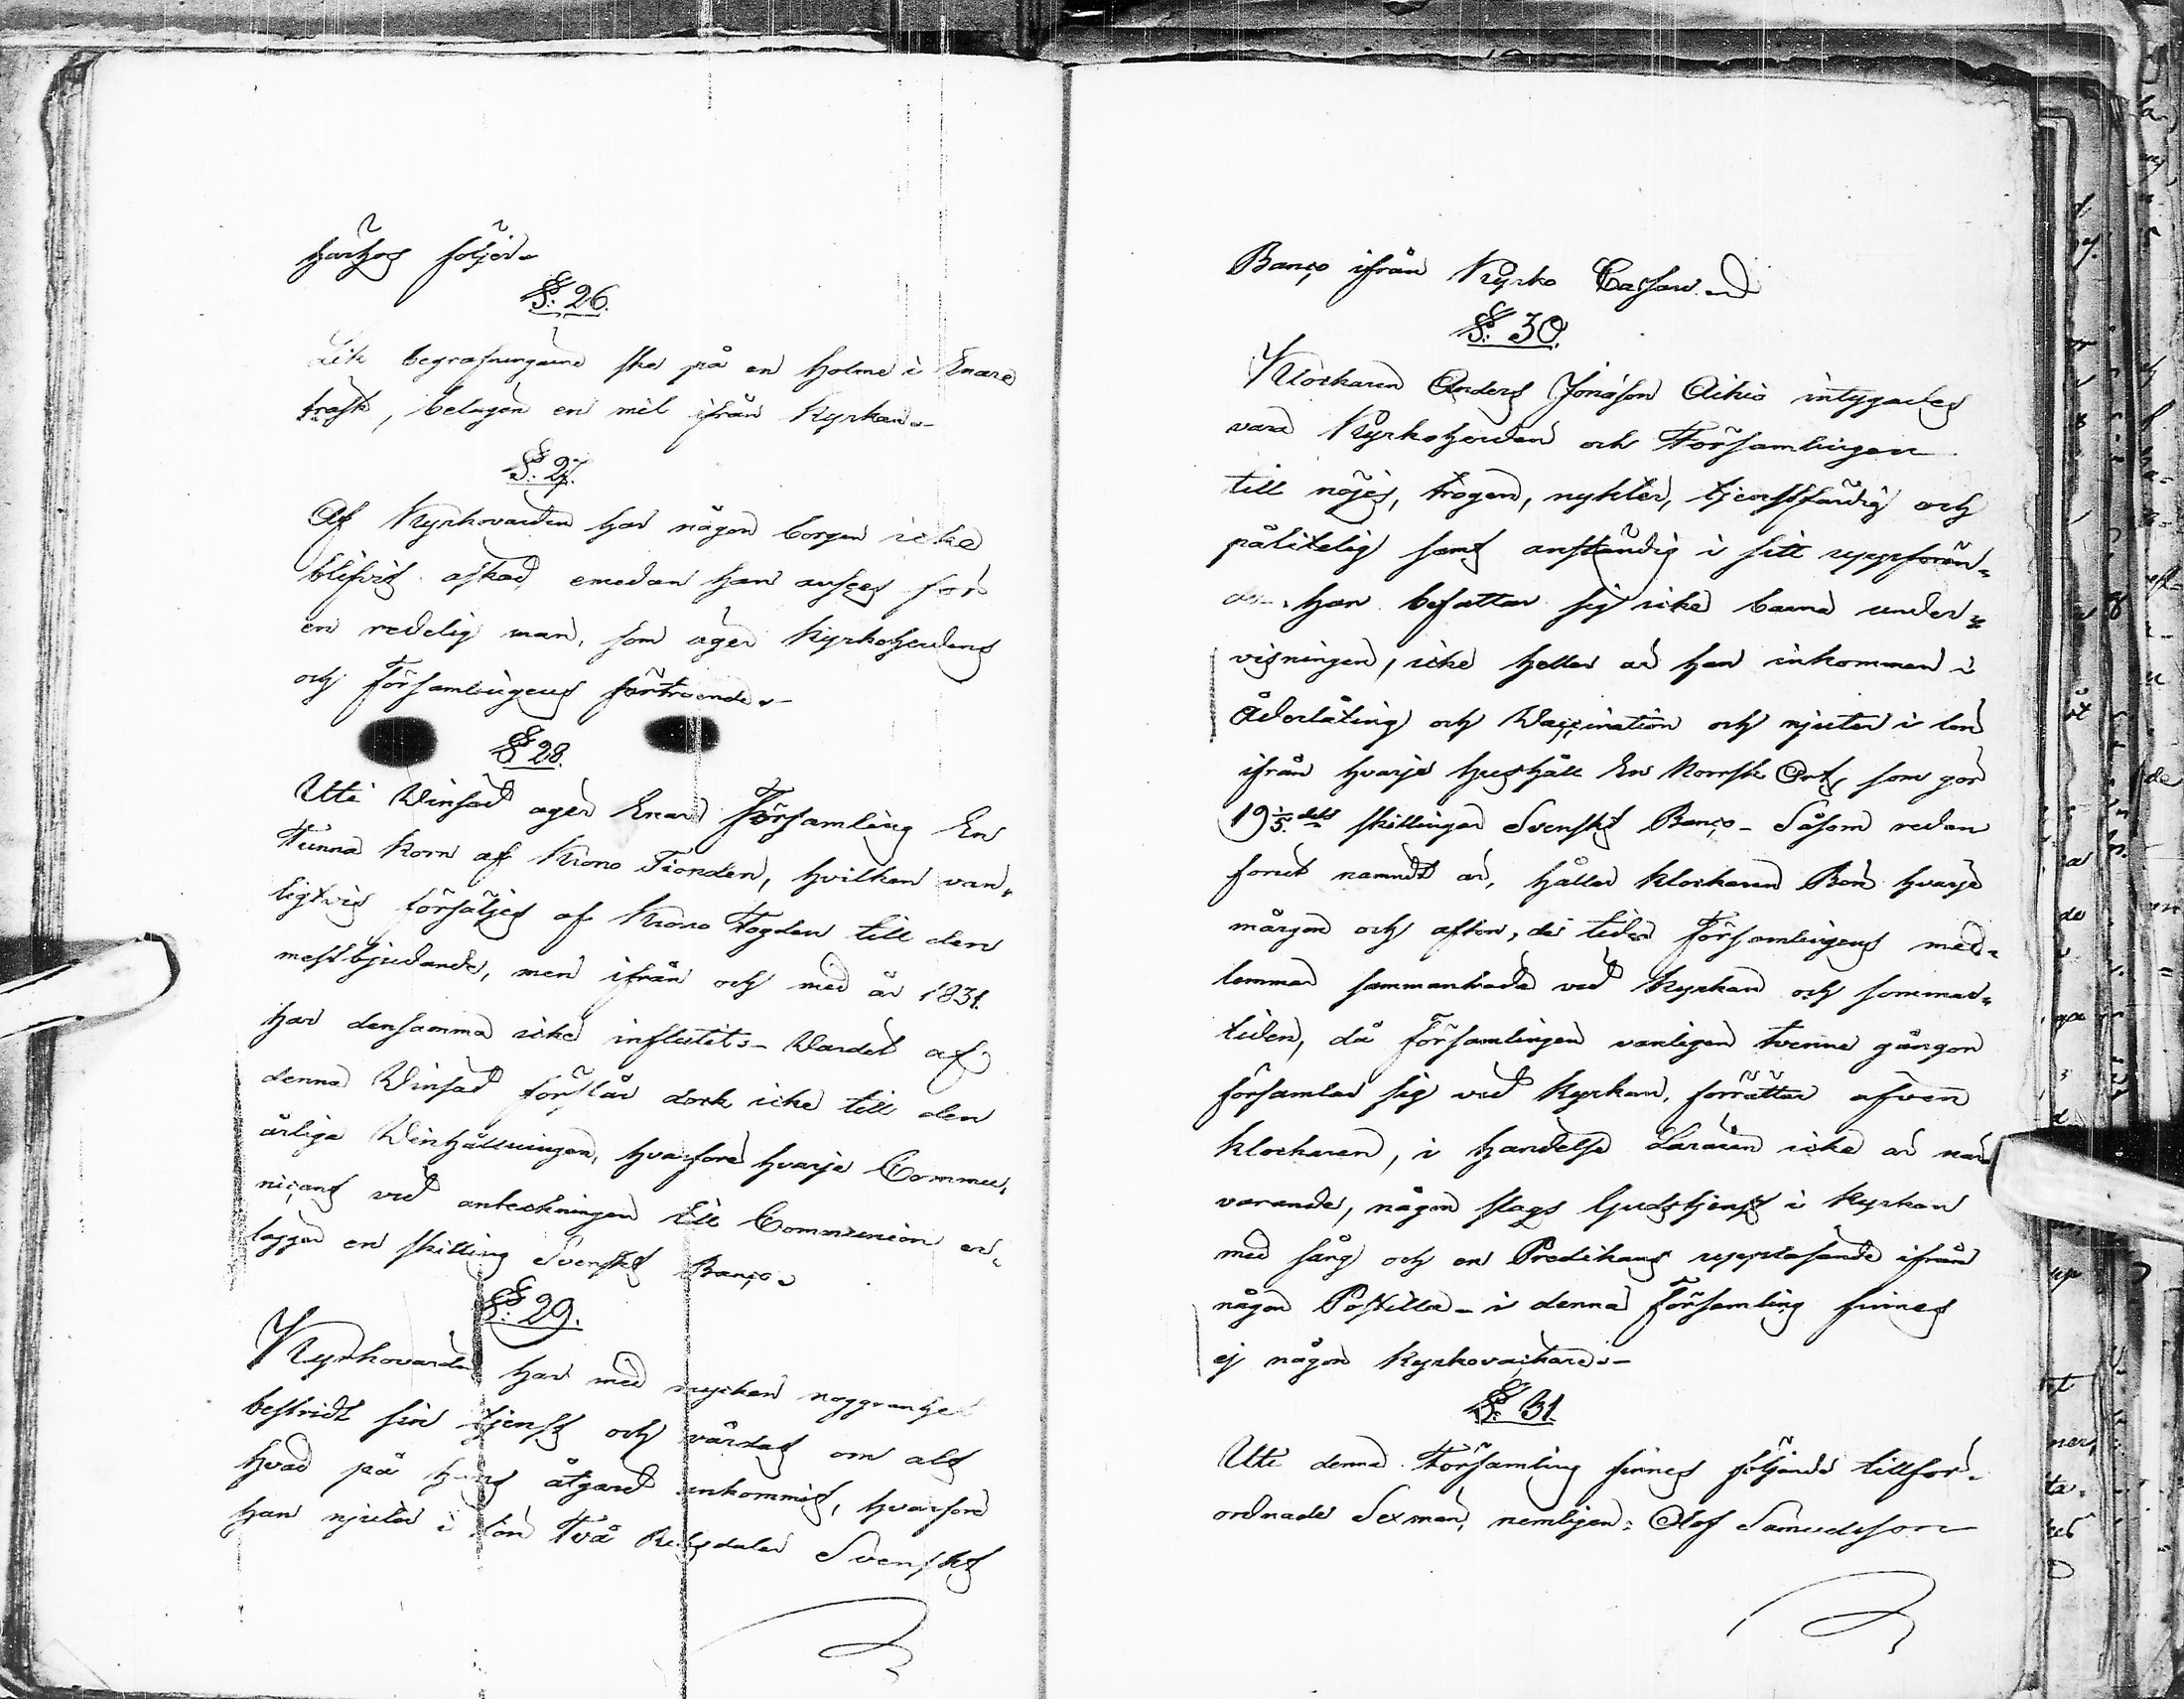 härhos följer.
§. 26.
Lik begrafningarne ske på en holme i Enare
träsk, belägen en mil ifrån Kyrkan.
§. 27.
Af Kyrkovärden har någon borgen icke
blifvit äskad, emedan han anses för
en redelig man, som äger Kyrkoherdens
och Församlingens förtroende.
§ 28.
Uti Vinsäd äger Enare Församling En
Tunna Korn af Krono Tionden, hvilken van-
ligtvis försäljes af Krono Fogden till den
mestbjudande, men ifrån och med år 1831.
har densamma icke influtit. Värdet af
denna Vinsäd förslår dock icke till den
årliga Vinhållningen, hvarföre hvarje Commu-
nicant vid anteckningen till Communion er-
lägger en skilling Svenskt Banco.
§. 29.
Kyrkovärden har med mycken noggranhet
bestridt sin tjenst och vårdat om alt
hvad på hans åtgärd ankommit, hvarföre
han njuter i lön Två Riksdaler Svenskt
Banco ifrån Kyrko Cassan.
§. 30.
Klockaren Anders Jonsson Aikio intygades
vara Kyrkoherden och Församlingen
till nöjes, trogen, nykter, tjenstfärdig och
pålitelig samt anständig i sitt uppföran-
de. han befattar sig icke barna under-
visningen, icke heller är han inkommen i
Åderlåting och Vaccination och njuter i lön
ifrån hvarje hushåll En Norrsk Ort, som gör
19 1/5 dels skillingar Svenskt Banco - Såsom redan
förut nämndt är, håller klockaren Bön hvarje
morgon och afton, de tider Församlingens med-
lemmar sammanträda vid Kyrkan och sommar-
tiden, då Församlingen vanligen tvenne gångor
församlar sig vid Kyrkan, förrättar äfven
klockaren, i händelse Läraren icke är när
varande, någon slags Gudstjenst i Kyrkan
med sång och en Predikans uppläsande ifrån
någon Postilla - i denna Församling finnes
ej någon Kyrkováktare.
§. 31.
Uti denna Församling finnes följande tillför-
ordnade Sexmän, nemligen: Olof Samuelsson